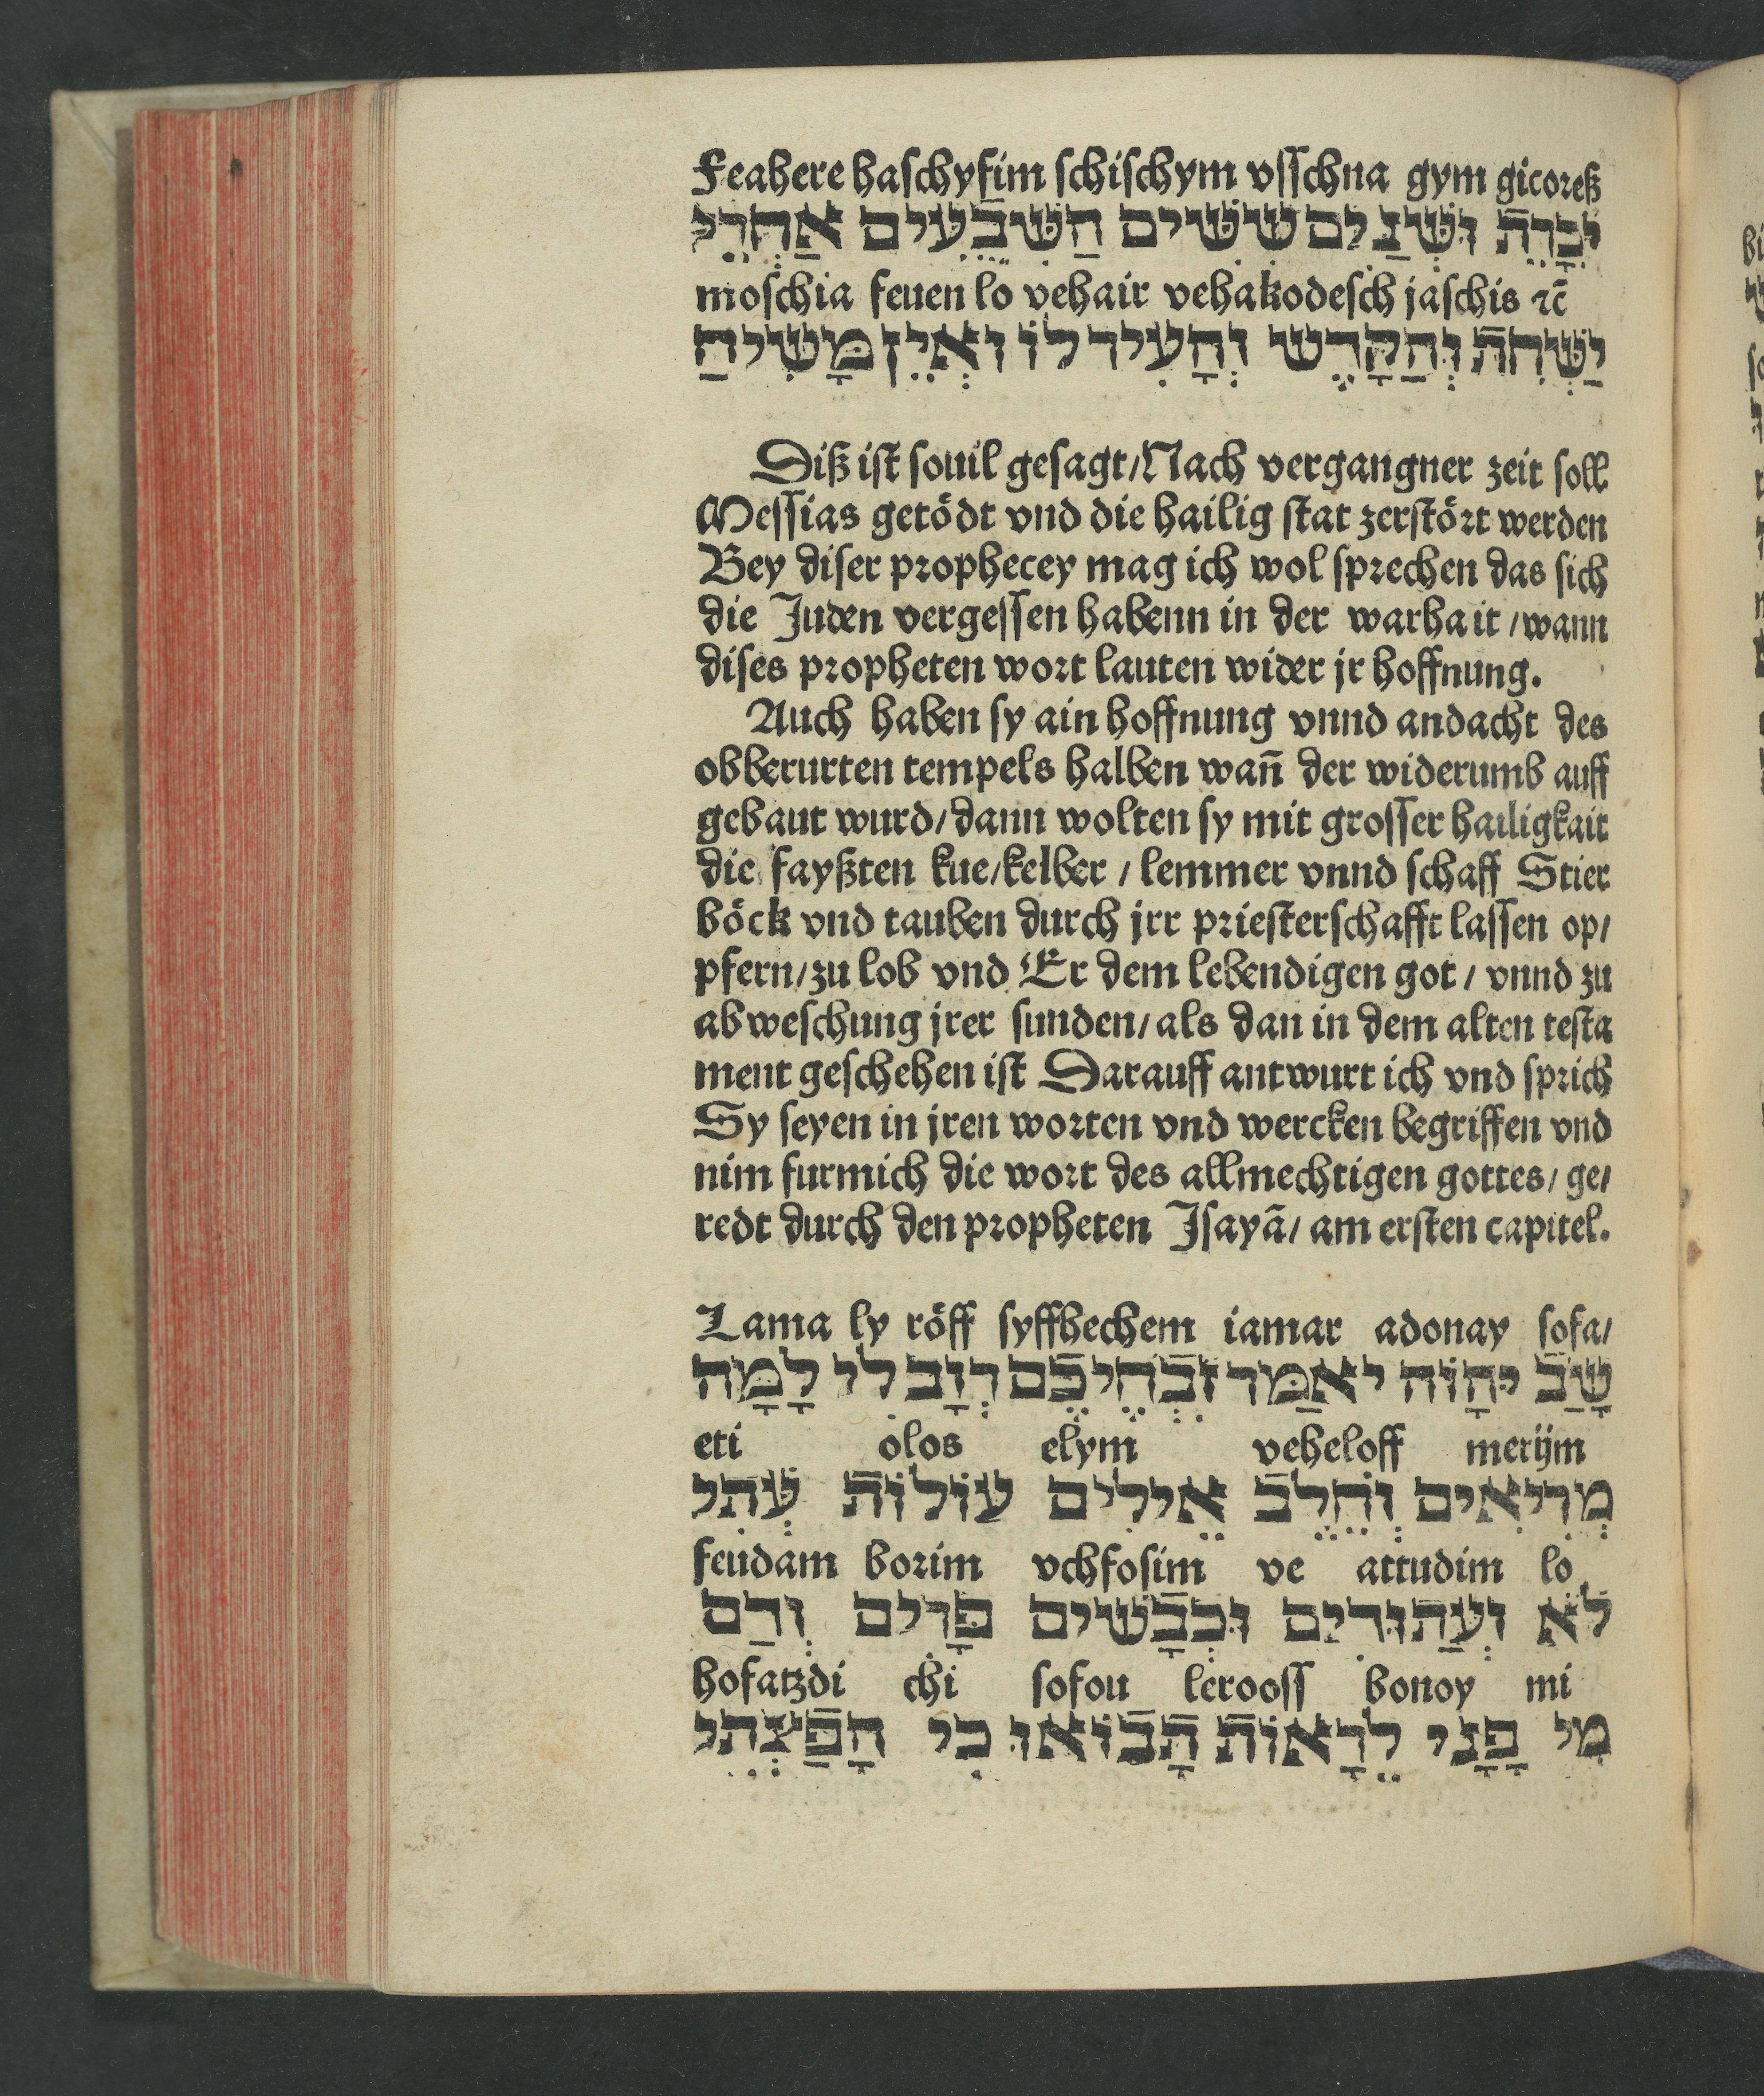 Feahere haschyfim schischym vsschna gym gicoreß
יִכָּרֵת וּשְׁנַיִם שִׁשִּׁים הַשִּׁבֳעִים אַחֲרֵי
moschia feuen lo vehair vehakodesch jaschis ⁊c̄
יַשְׁחִת וְהַקֹּדֶשׁ וְהָעִיר לוֹ וְאֵין מָּשִׁיחַ
Diß ist souil gesagt/Nach vergangner zeit soll
Messias getödt vnd die hailig stat zerstört werden
Bey diser prophecey mag ich wol sprechen das sich
die Juden vergessen habenn in der warhait/wann
dises propheten wort lauten wider jr hoffnung.
Auch haben sy ain hoffnung vnnd andacht des
obberurten tempels halben wañ der widerumb auff
gebaut wurd/dann wolten sy mit grosser hailigkait
die fayßten kue/kelber/lemmer vnnd schaff Stier
böck vnd tauben durch jrr priesterschafft lassen op/
pfern/zu lob vnd Er dem lebendigen got/vnnd zu
abweschung jrer sunden/als dan in dem alten testa
ment geschehen ist Darauff antwurt ich vnd sprich
Sy seyen in jren worten vnd wercken begriffen vnd
nim furmich die wort des allmechtigen gottes/ge/
redt durch den propheten Jsayã/am ersten capitel.
Lama ly röff syffhechem iamar adonay sofa/
שָׂבַ יְהָוֹה יאַמּר זִבְחֵיכֶם רָוב לִי לָמָּה
eti olos elym veheloff merijm
מְרִיאִים וְחֵלֶב אֵילִים עוֹלוֹת עְתִּי
feudam borim vchfosim ve attudim lo
לֹא וְעַתּוּדִים וּכְבָשִׂים פָּרִים וְדַם
hofatzdi chi sofou lerooss bonoy mi
מִי פָּנָי לֵרָאוֹת תָּבוֹאוּ כִּי חָפַצְתִּי